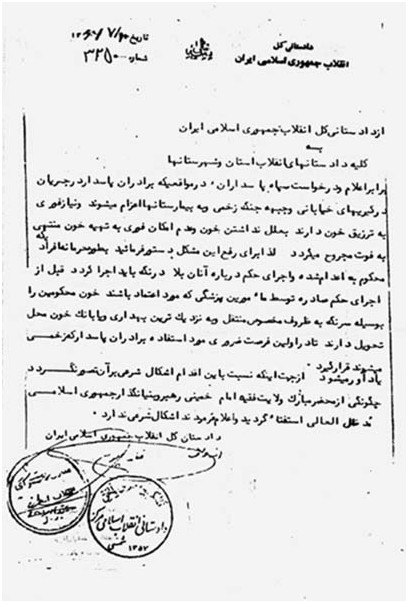 دادستانی کل
انقلاب جمهوری اسلامی ایران
تاریخ
شماره ۳۲۵۰
از دادستانی کل انقلاب جمهوری اسلامی ایران
به
کلیه دادستانهای انقلاب استان و شهرستانها
برابر اعلام و درخواست سپاه پاسداران، در مواقعیکه برادران پاسدار در جریان
درگیریهای خیابانی و جبهه جنگ زخمی و به بیمارستانها اعزام میشوند و نیاز فوری
به تزریق خون دارند بعلل نداشتن خون و عدم امکان فوری به تهیه خون منتهی
به فوت مجروح میگردد لذا برای رفع این مشکل دستور فرمائید بطور محرمانه افراد
محکوم به اعدام شده و اجرای حکم درباره آنان بلا درنگ باید اجرا گردد قبل از
اجرای حکم صادره توسط مأمورین پزشکی که مورد اعتماد باشند خون محکومین را
بوسیله سرنگ به ظروف مخصوص منتقل و به نزدیک ترین بهداری و یا بانک خون محل
تحویل دارند تا در اولین فرصت ضروری مورد استفاده برادران پاسدار که زخمی
میشوند قرار گیرد
یادآور میشود از جهت اینکه نسبت باین اقدام اشکال شرعی بر آن تصور نگردد
چگونگی از محضر مبارک ولایت فقیه امام خمینی رهبر و بنیانگذار جمهوری اسلامی
مد ظله العالی استفتاء گردید و اعلام فرمودند اشکال شرعی ندارد.
دادستان کل انقلاب جمهوری اسلامی ایران
دادستانی انقلاب اسلامی مرکز
۱۳۵۷